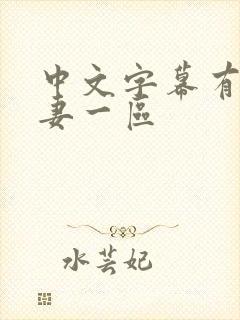 中文字幕有
妻一區
水芸妃